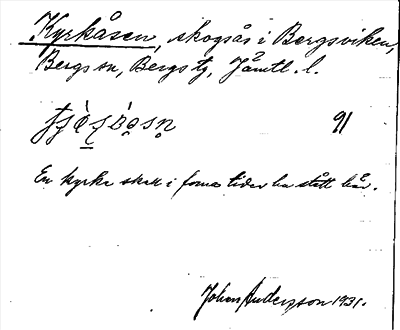 Kyrkåsen, skogsås i Bergsviken,
Bergs sn, Bergs tg, Jämtl. l.
91
En kyrka skall i forna tider ha stått här.
Johan Andersson 1931.